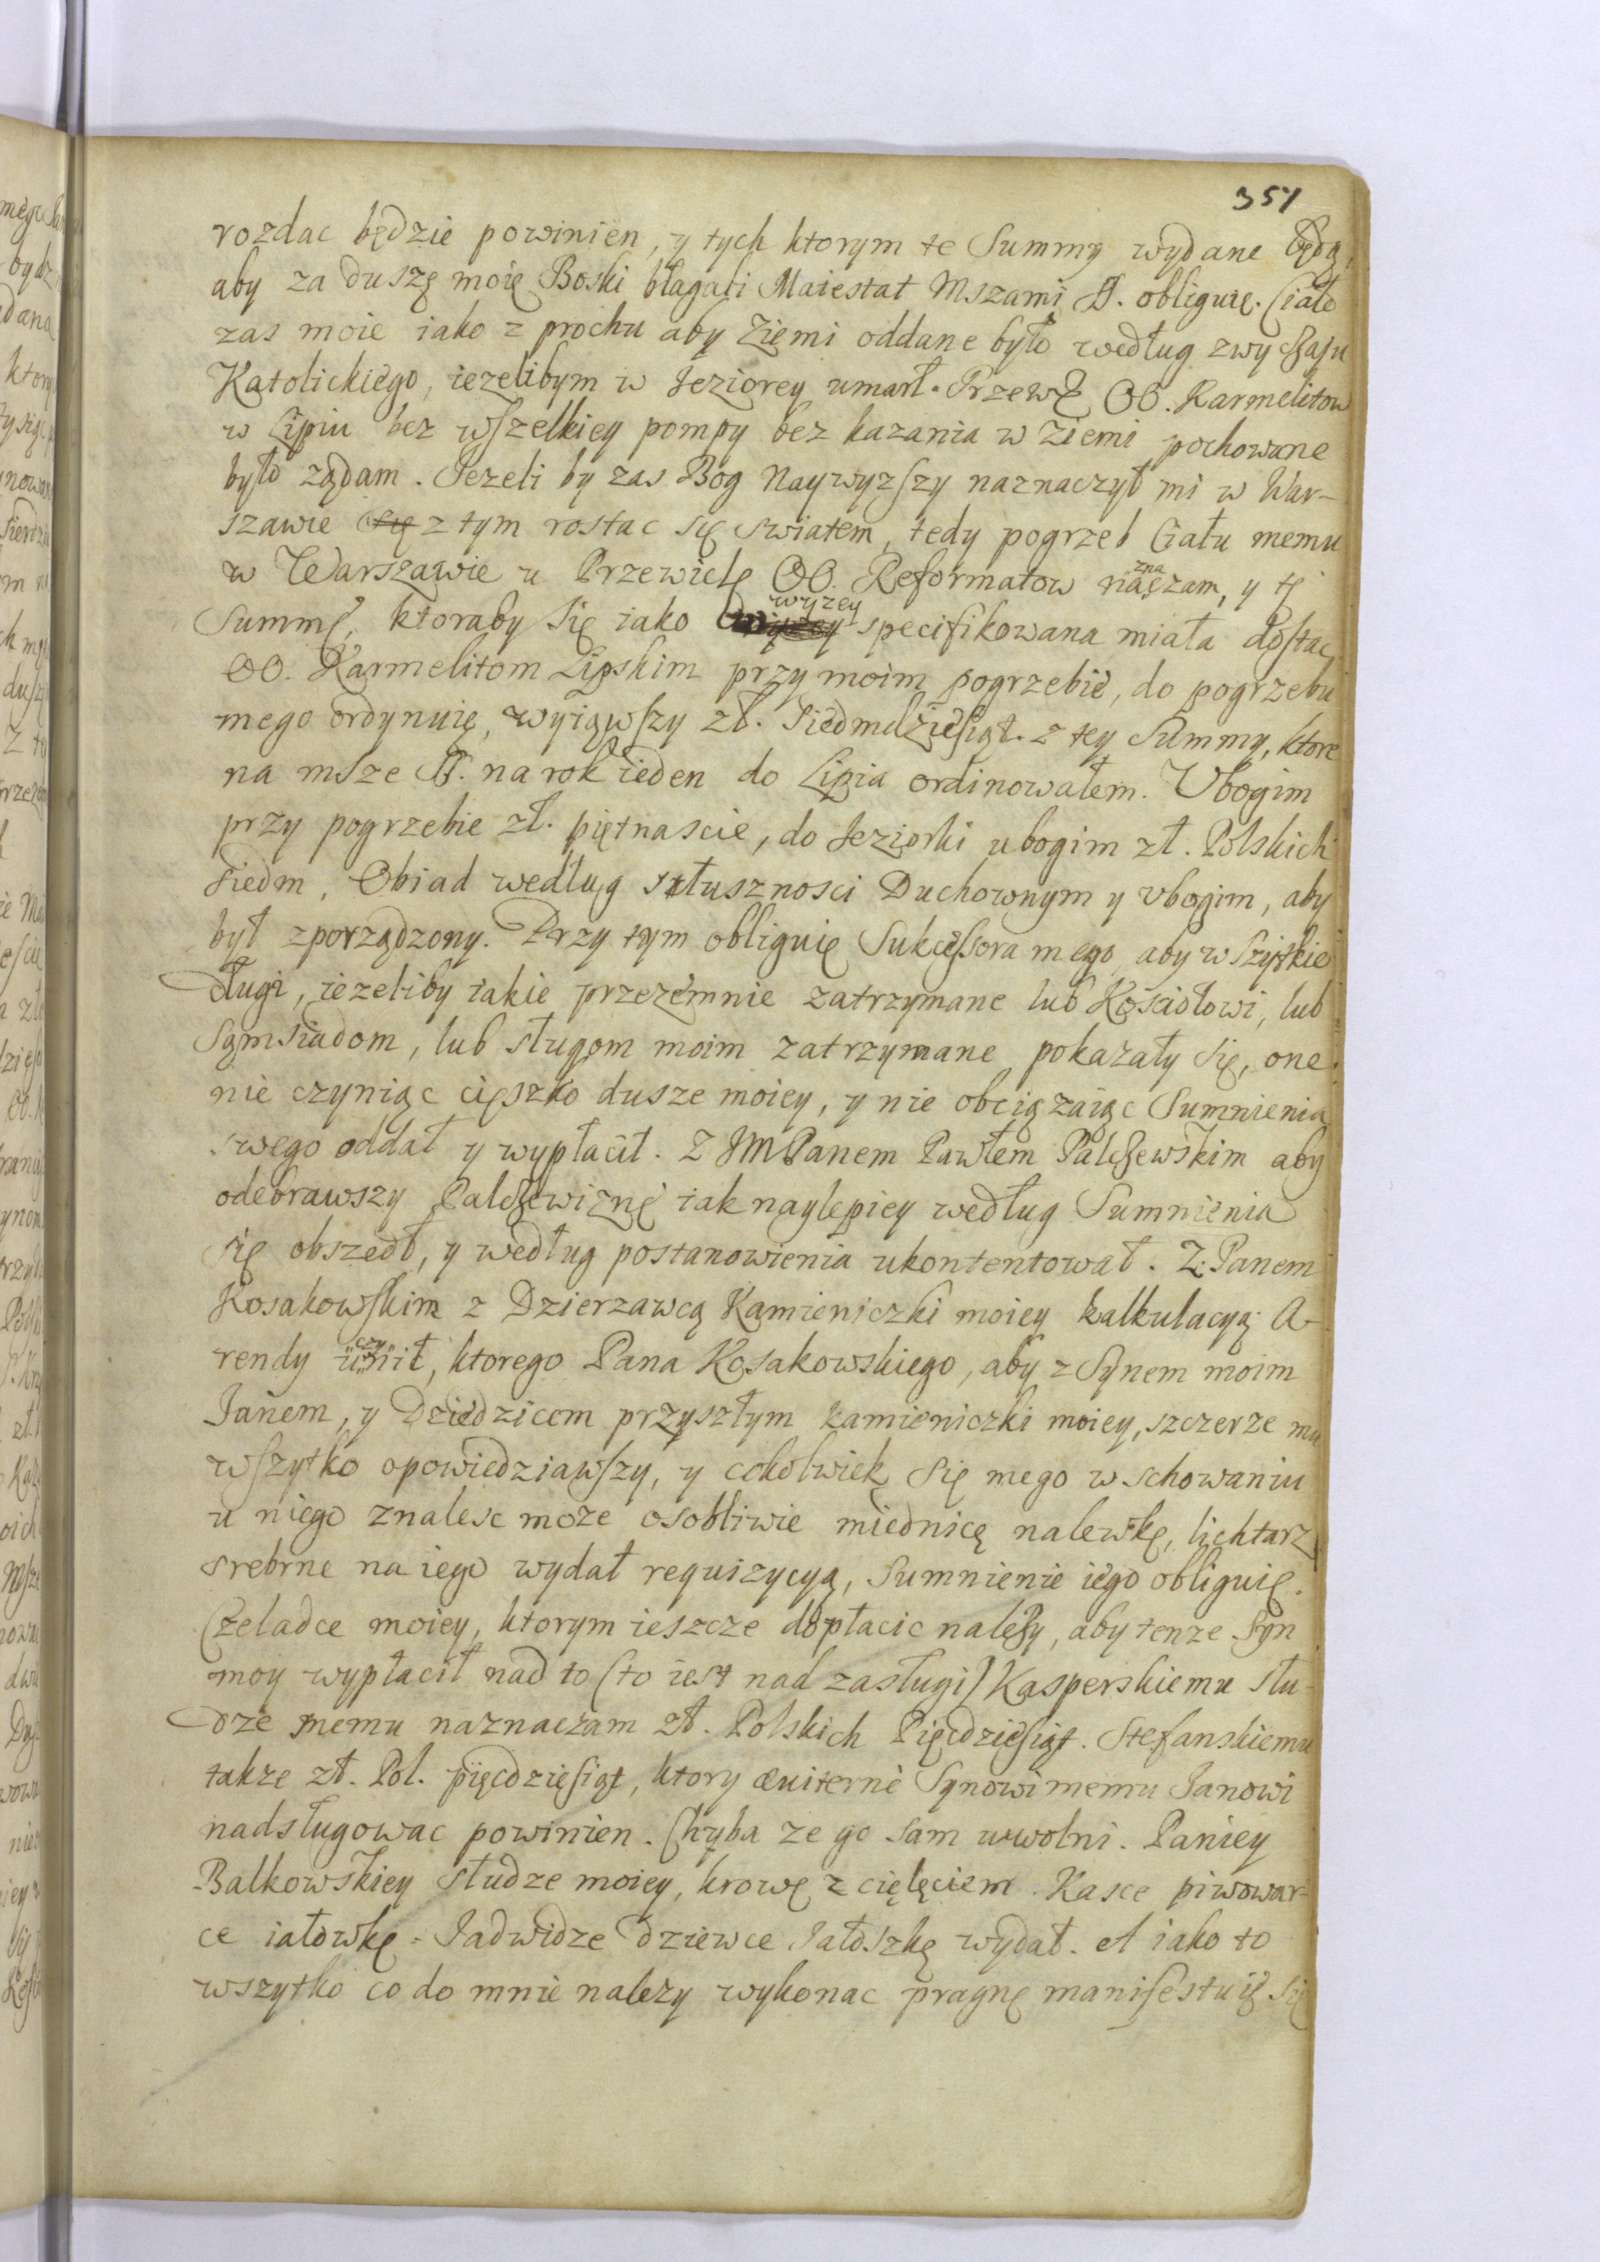 351
rozdac będzie powinien, y tych ktorym te Summy wydane będą,
aby za duszę moię Boski błagali Maiestat Mszami S. obliguię. Ciało
zas moie iako z prochu aby Ziemi oddane było według zwyczaiu
Katolickiego, iezelibym w Jeziorey umarł. Przew. OO. Karmelitow
w Lipiu bez wszelkiey pompy bez kazania w Ziemi pochowane
było ządam. Jezeli by zas Bog Naywyzszy naznaczył mi w War-
szawie się z tym rostac się swiatem, tedy pogrzeb Ciału memu
w Warszawie u Przewiele OO. Reformatow naznaczam, y tę
Summę, ktoraby się iako wyzey specifikowana miała dostac
OO. Karmelitom Lipskim przy moim pogrzebie, do pogrzebu
mego ordynuię, wyiąwszy zł. Siedmdziesiąt z tey Summy, ktore
na msze S. na rok ieden do Lipia ordinowałem. Vbogim
przy pogrzebie zł. piętnascie, do Jeziorki ubogim zł. Polskich
siedm, Obiad według słusznosci Duchownym y vbogim, aby
był zporządzony. Przy tym obliguię Sukcessora mego, aby wszystkie
długi, iezeliby iakie przezemnie zatrzymane lub Kosciołowi, lub
Sąmsiadom, lub sługom moim zatrzymane pokazały się, one
nie czyniąc cięszko dusze moiey, y nie obciązaiąc Sumnienia
swego oddał y wypłacił. Z JMPanem Pawłem Palczewskim aby
odebrawszy Palczewiznę iak naylepiey według Sumnienia
się obszedł, y według postanowienia ukontentował. Z Panem
Kosakowskim z Dzierzawcą Kamieniczki moiey kalkulacyą A-
rendy uczynił, ktorego Pana Kosakowskiego, aby z Synem moim
Janem, y Dziedzicem przyszłym kamieniczki moiey, szczerze mu
wszytko opowiedziawszy, y cokolwiek się mego w schowaniu
u niego znalesc moze osobliwie miednicę nalewkę, lichtarz
srebrne na iego wydał requizycyą, Sumnienie iego obliguię.
Czeladce moiey, ktorym ieszcze dopłacic nalezy, aby tenze Syn
moy wypłacił nad to (to iest nad zasługi) Kasperskiemu słu-
dze memu naznaczam zł. Polskich Pięcdziesiąt. Stefanskiemu
takze zł. Pol. pięcdziesiąt, ktory æuiternè Synowi memu Janowi
nadsługowac powinien. Chyba ze go sam uwolni. Paniey
Balkowskiey słudze moiey, krowę z cielęciem. Kasce piwowar-
ce iałowkę. Jadwidze dziewce Jałoszkę wydał. A iako to
wszytko co do mnie nalezy wykonac pragnę manifestuię się